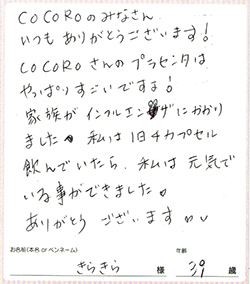 COCOROのみなさん
いつもありがとうございます!
COCOROさんのプラセンタは
やっぱりすごいですね!
家族がインフルエンザにかかり
ました。私は1日4カプセル
飲んでいたら、私は元気で
いる事ができました。
ありがとうございます。
お名前(本名 or ペンネーム) 年齢
きらきら 様 39 歳